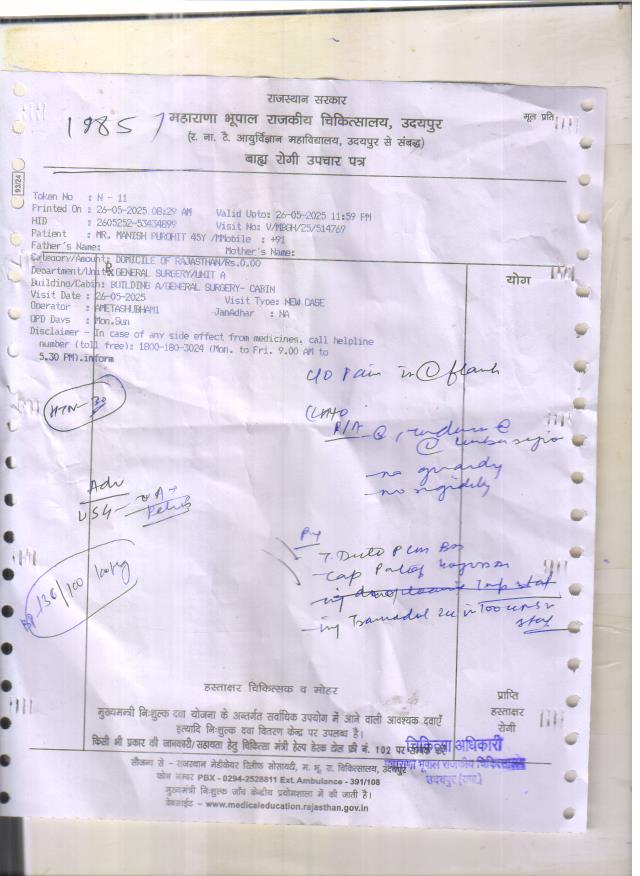 राजस्थान सरकार
1985/
महाराणा भूपाल राजकीय चिकित्सालय, उदयपुर
मूल प्रति
(र. ना. टै. आयुर्विज्ञान महाविद्यालय, उदयपुर से संबद्ध)
बाह्य रोगी उपचार पत्र
93/24
Token No : N - 11
Printed On : 26-05-2025 08:29 AM Valid Upto: 26-05-2025 11:59 PM
HID : 2605252-53434899 Visit No: V/MBGH/25/514769
Patient : MR. MANISH PUROHIT 45Y /MMobile : +91
Father's Name: Mother's Name:
Category/Amount: DOMICILE OF RAJASTHAN/Rs.0.00
Department/Unit: GENERAL SURGERY/UNIT A
योग
Building/Cabin: BUILDING A/GENERAL SURGERY- CABIN
Visit Date : 26-05-2025 Visit Type: NEW CASE
Operator : AMETASHUBHAM1 JanAdhar : NA
OPD Days : Mon,Sun
Disclaimer - In case of any side effect from medicines, call helpline
number (toll free): 1800-180-3024 (Mon. to Fri. 9.00 AM to
5.30 PM).inform
C/O Pain in Ⓛ flank
HTN-
P/A
no guarding
no rigidity
Adv
USG-
Pelvis
136/100
Inj Tramadol in
stat
हस्ताक्षर चिकित्सक व मोहर
प्राप्ति
हस्ताक्षर
रोगी
मुख्यमन्त्री निःशुल्क दवा योजना के अन्तर्गत सर्वाधिक उपयोग में आने वाली आवश्यक दवाएँ
इत्यादि निःशुल्क दवा वितरण केन्द्र पर उपलब्ध है।
किसी भी प्रकार की जानकारी/सहायता हेतु चिकित्सा मंत्री हेल्प डेस्क टोल फ्री नं. 102 पर सम्पर्क करें
चिकित्सा अधिकारी
सौजन्य से - राजस्थान मेडीकेयर रिलीफ सोसायटी, म. भू. रा. चिकित्सालय, उदयपुर
महाराणा भूपाल राजकीय चिकित्सालय
फोन नम्बर PBX - 0294-2528811 Ext. Ambulance - 391/108
उदयपुर (राज.)
मुख्यमंत्री निःशुल्क जाँच केन्द्रीय प्रयोगशाला में की जाती है।
वेबसाईट - www.medicaleducation.rajasthan.gov.in